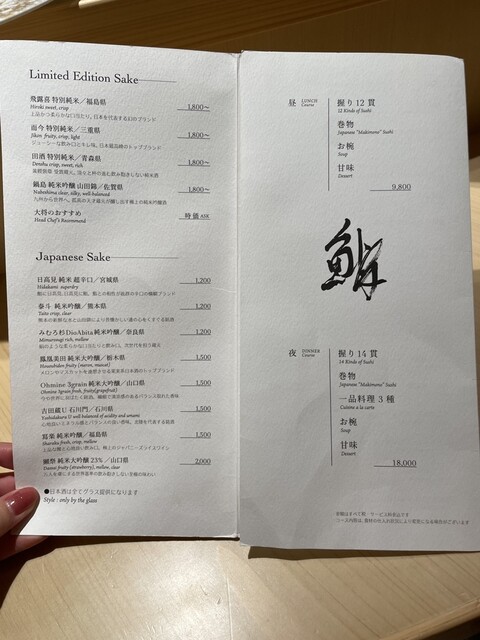 Limited Edition Sake
飛露喜 特別純米／福島県 1,800〜
Hiroki sweet, crisp
上品かつ柔らかな口当たり、日本を代表する幻のブランド
而今 特別純米／三重県 1,800〜
Jikon fruity, crisp, light
ジューシーな飲み口とキレ味、日本最高峰のトップブランド
田酒 特別純米／青森県 1,800〜
Denshu crisp, sweet, rich
鍋島 純米吟醸 山田錦／佐賀県 1,800〜
Nabeshima clear, silky, well-balanced
大将のおすすめ 時価 ASK
Head Chef's Recommend
Japanese Sake
日高見 純米 超辛口／宮城県 1,200
Hidakami superdry
泰斗 純米吟醸／熊本県 1,200
Taito crisp, clear
みむろ杉 DioAbita 純米吟醸／奈良県 1,200
Mimurosugi rich, mellow
鳳凰美田 純米大吟醸／栃木県 1,500
Hououbiden fruity (melon, muscat)
Ohmine 3grain 純米大吟醸／山口県 1,500
Ohmine 3grain fresh, fruity(grape)
吉田蔵 U 石川門／石川県 1,500
Yoshidakura U well-balanced of acidity and umami
寫楽 純米吟醸／福島県 1,500
Sharaku fresh, crisp, mellow
獺祭 純米大吟醸 23%／山口県 2,000
Dassai fruity (strawberry), mellow, clear
●日本酒は全てグラス提供になります
Style : only by the glass
昼 LUNCH Course
握り 12 貫
12 Kinds of Sushi
巻物
Japanese "Makimono" Sushi
お椀
Soup
甘味
Dessert
9,800
鮨
夜 DINNER Course
握り 14 貫
14 Kinds of Sushi
巻物
Japanese "Makimono" Sushi
一品料理 3 種
Cuisine a la carte
お椀
Soup
甘味
Dessert
18,000
金額はすべて税・サービス料券込です
コース内容は、食材の仕入れ状況により変更になる場合がございます